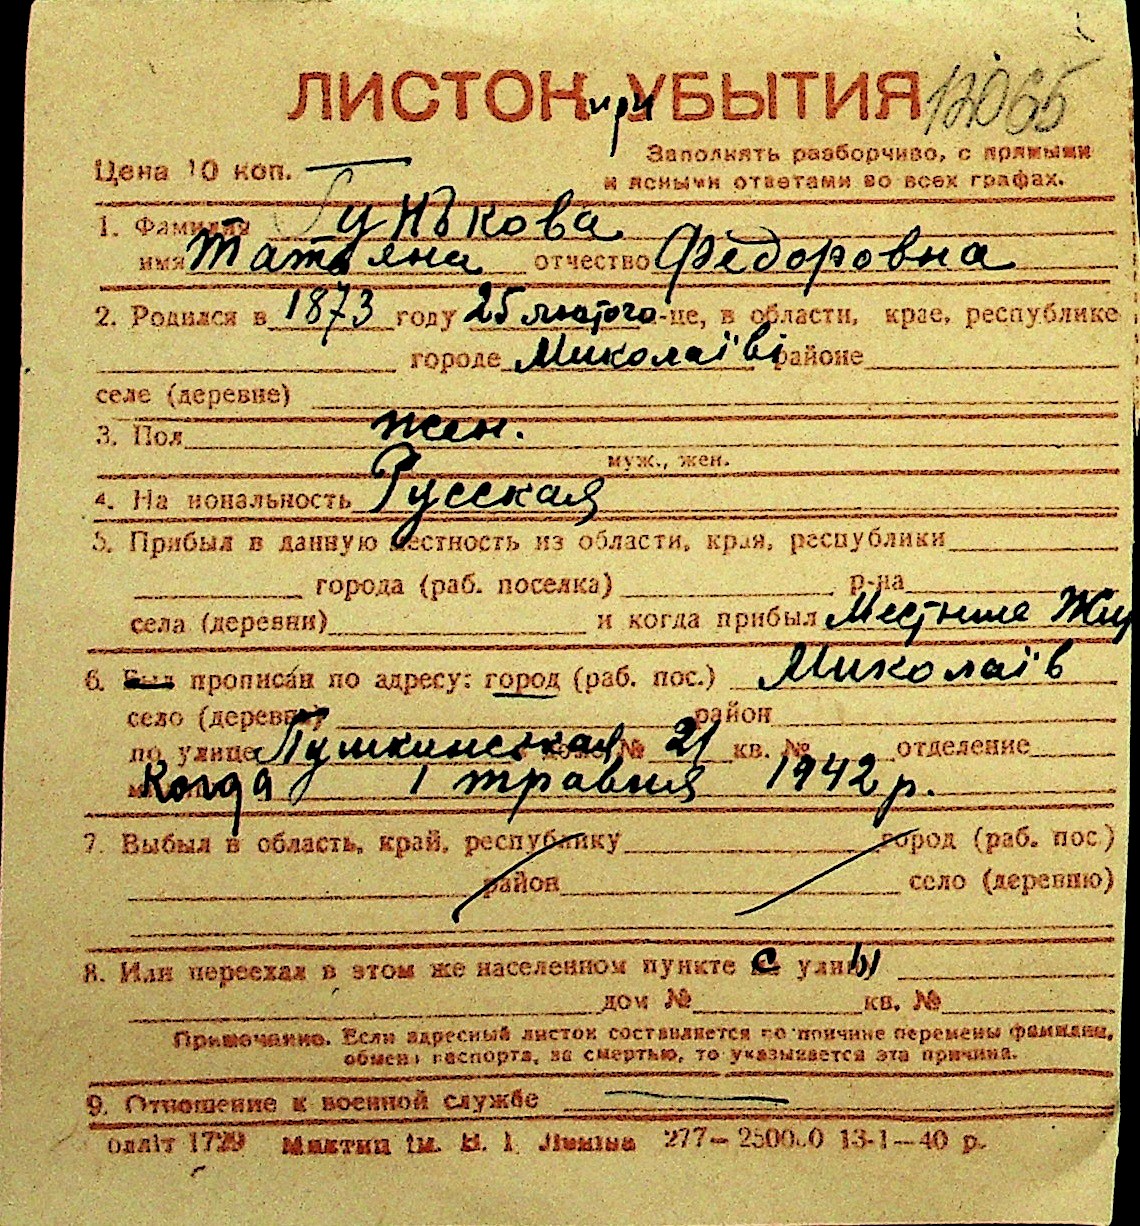 ЛИСТОК при УБЫТИЯ 12065
Цена 10 коп. Заполнять разборчиво, с прямыми
и ясными ответами во всех графах.
1. Фамилия Гунькова
имя Татьяна отчество Федоровна
2. Родился в 1873 году 25 лютого м-це, в области, крае, республике
городе Миколаїві районе
селе (деревне)
3. Пол жен.
муж., жен.
4. Национальность Русская
5. Прибыл в данную местность из области, края, республики
города (раб. поселка) р-на
села (деревни) и когда прибыл Местные Жит
6. Был прописан по адресу: город (раб. пос.) Миколаїв
село (деревня) район
по улице Пушкинская дом № 21 кв. № отделение
Когда 1 травня 1942 р.
7. Выбыл в область, край, республику город (раб. пос)
район село (деревню)
8. Или переехал в этом же населенном пункте с улицы
дом № кв. №
Примечание. Если адресный листок составляется по причине перемены фамилии,
обмена паспорта, за смертью, то указывается эта причина.
9. Отношение к военной службе
Оддліт 1729 Миктип ім. В. І. Леніна 277—250000 13-1—40 р.